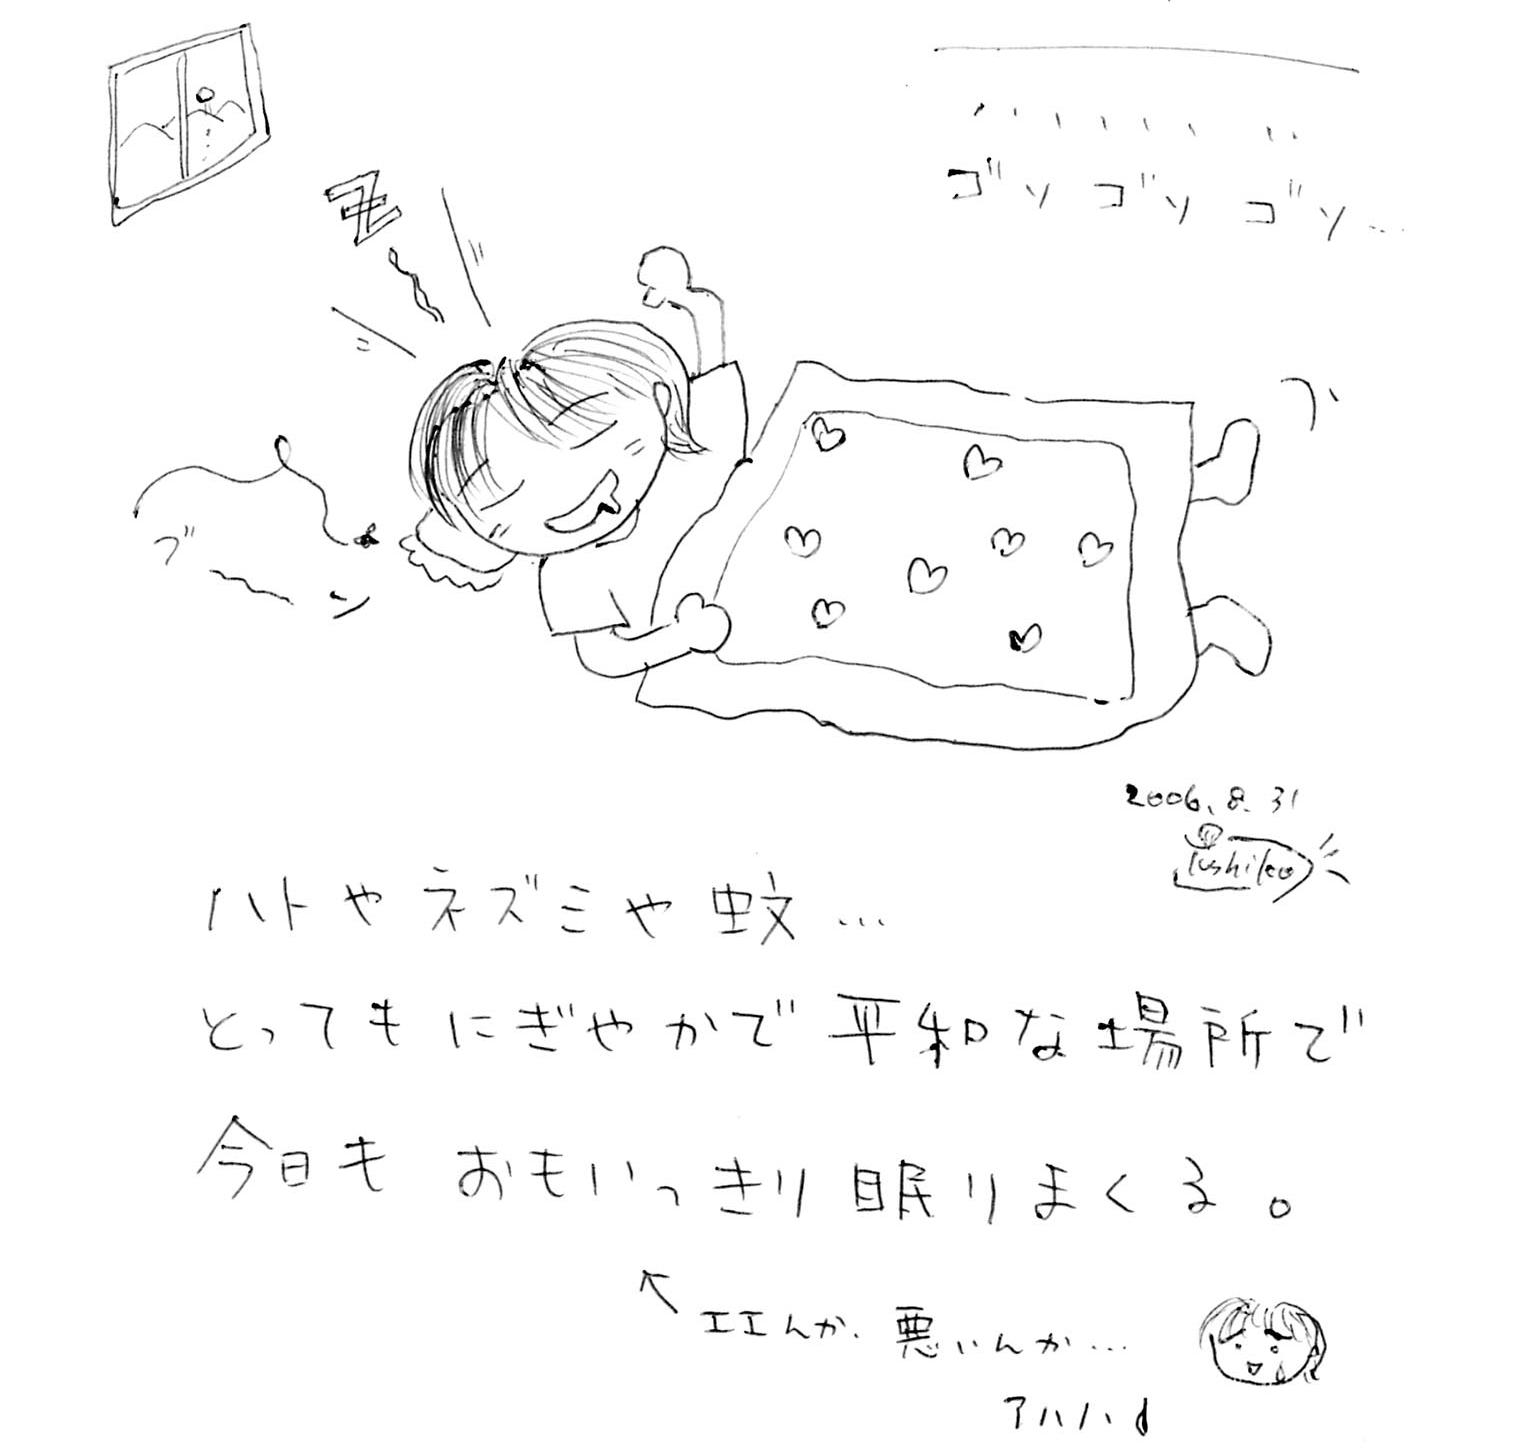 Z
ゴソ ゴソ ゴソ…
ブ〜〜ン
2006.8.31
ハトやネズミや蚊…
とってもにぎやかで平和な場所で
今日も おもいっきり眠りまくる。
↖ エエんか、悪いんか…
アハハ